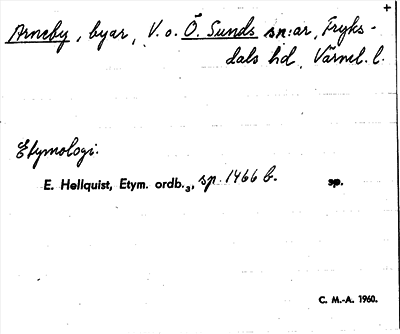 +
Arneby, byar, V. o. Ö. Sunds sn:ar, Fryks-
dals hd, Värml. l.
Etymologi.
E. Hellquist, Etym. ordb.3, sp. 1466 b. sp.
C. M.-A. 1960.